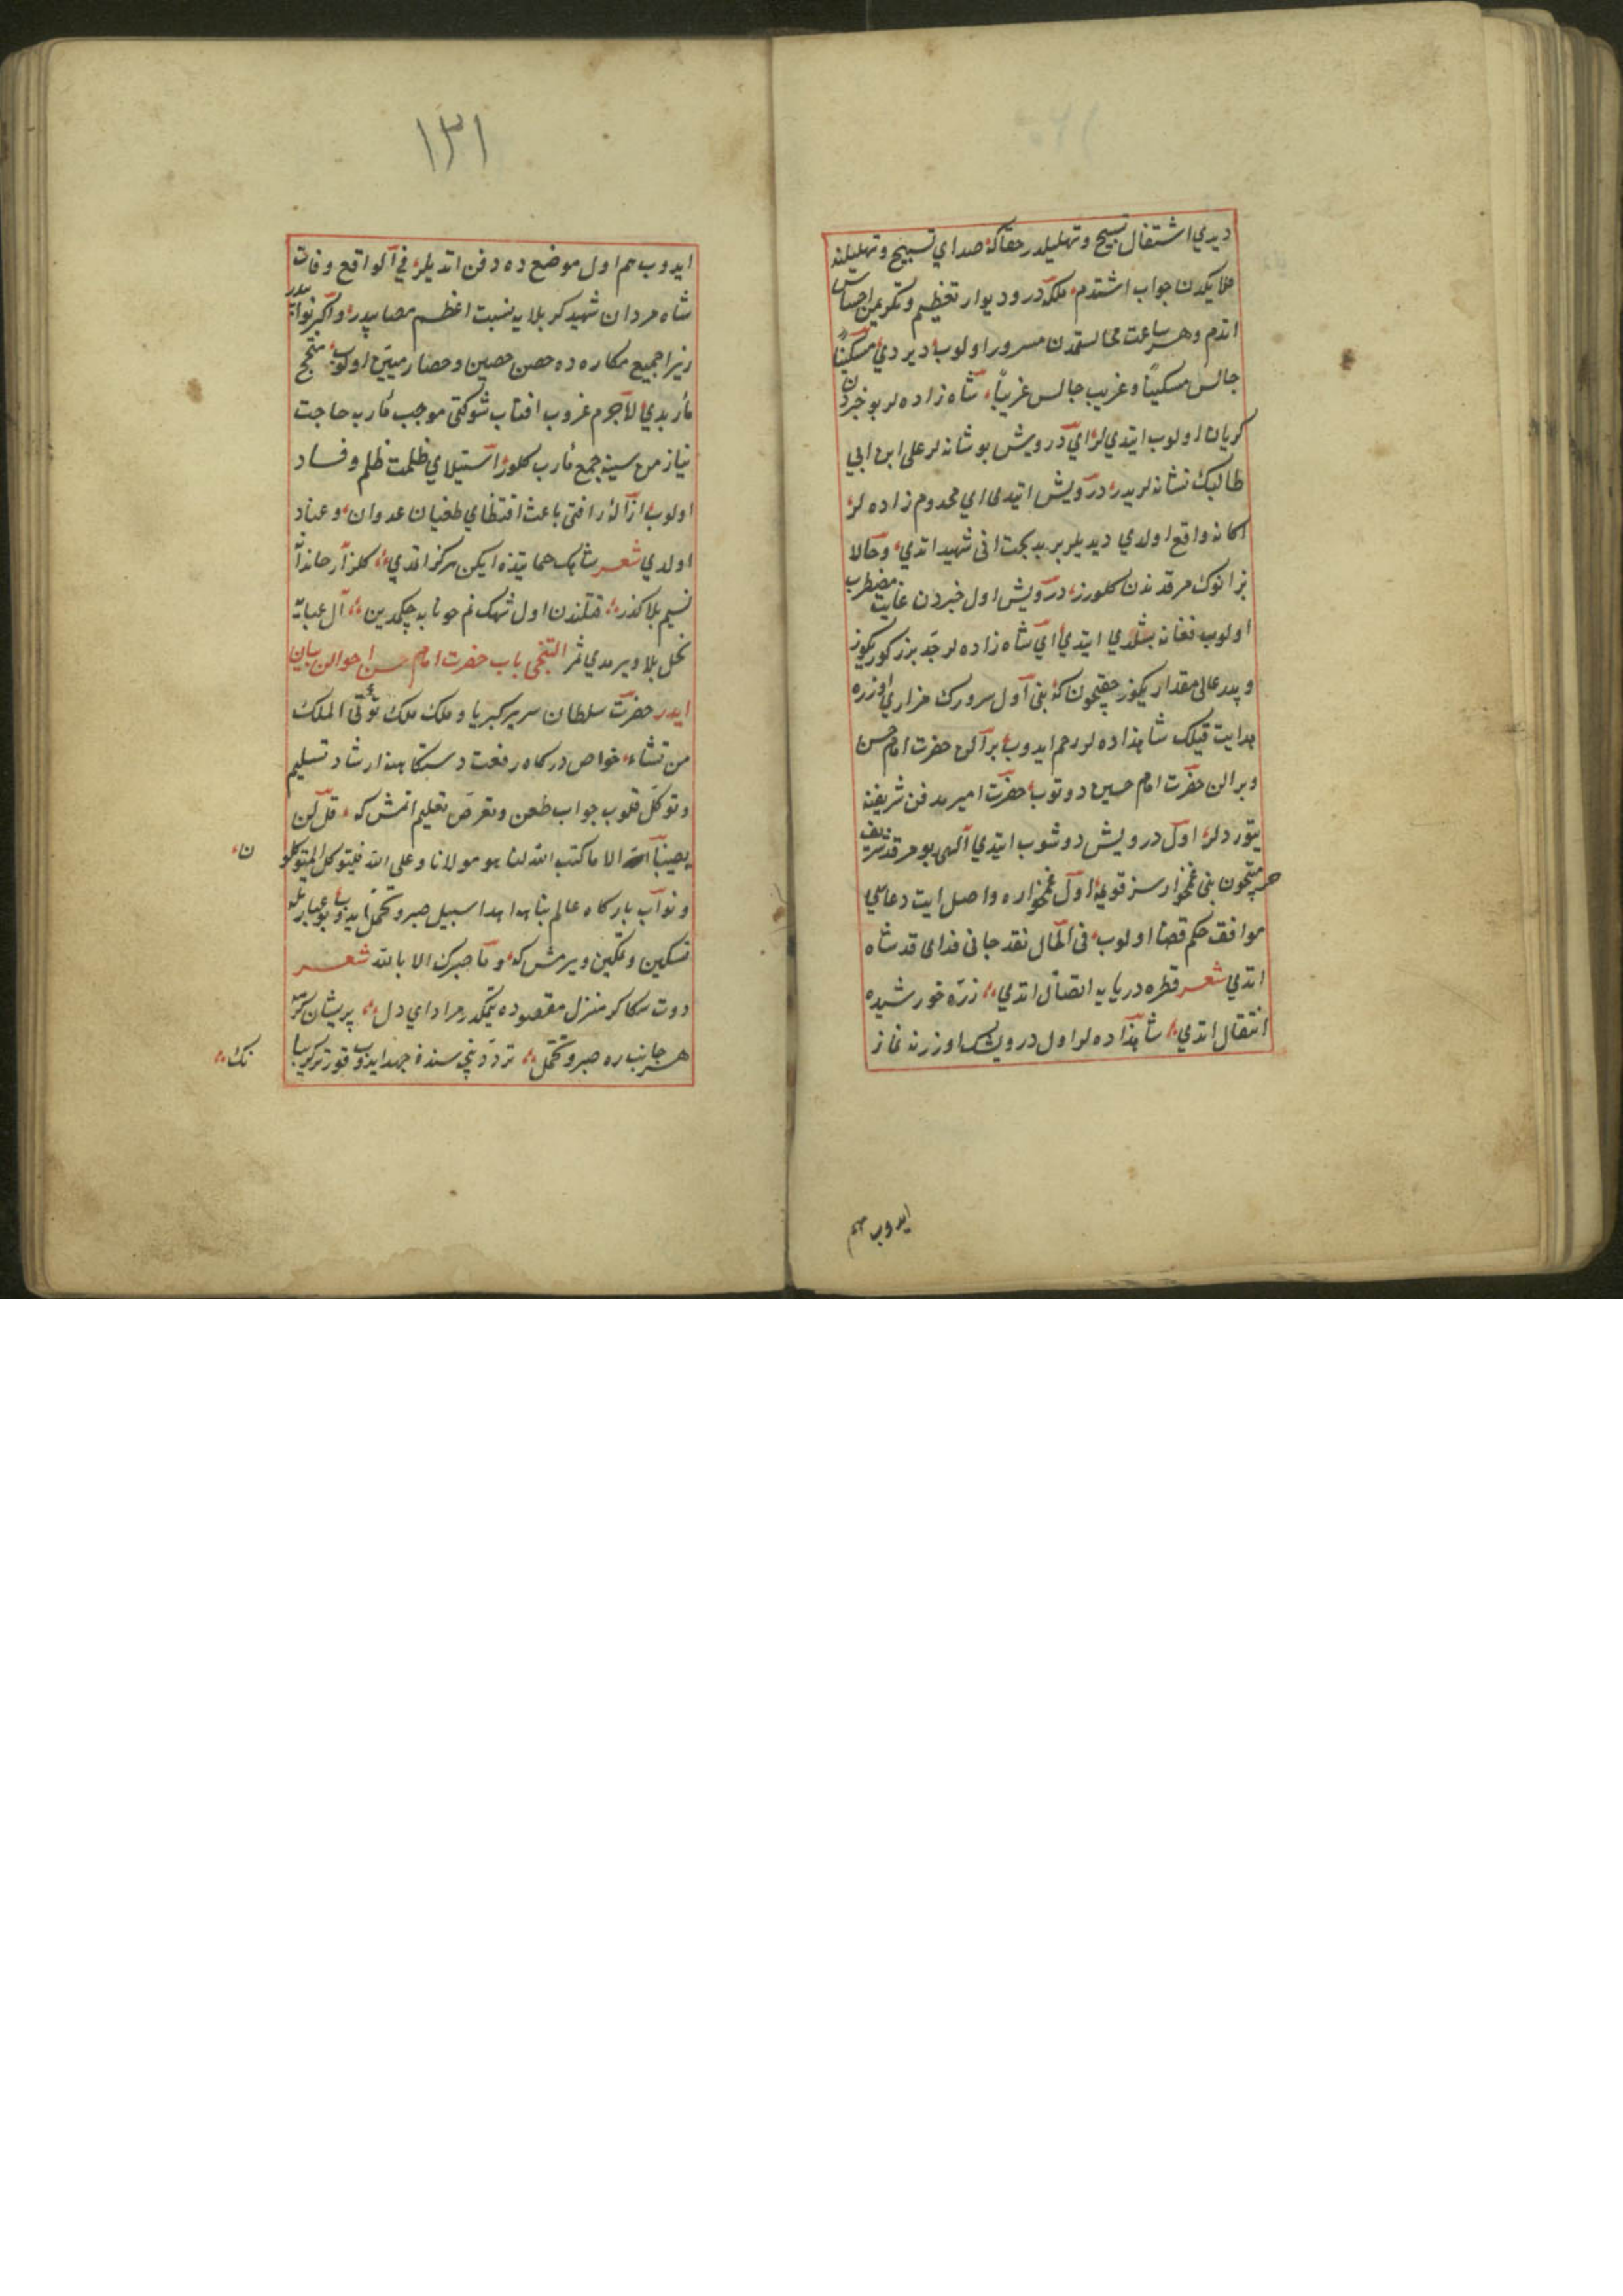 ديدي اشتغال تسبيح و تهليلدر حقاكه صداي تسبيح و تهليلنه
ملايكدن جواب اشتدم بلكه در و ديوار تعظيم و تكريمن احساس
اتدم و هر ساعت مجالستمدن مسرور اولوب ديردي مسكيناً
جالس مسكيناً و غريب جالس غريباً شاه زاده لر بو خبردن
كريان اولوب ايتدي لر اي درويش بو نشانه لر على ابن ابي
طالبك نشانه لريدر درويش ايتدى اي مخدوم زاده لر
اكا نه واقع اولدي ديديلر بر بدبخت انى شهيد اتدي و حالا
بز انوك مرقدندن كلورز درويش اول خبردن غايت مضطرب
اولوب فغانه بشلدي ايتدي اي شاه زاده لر جد بزركوريكوز
و پدر عالى مقداريكوز حقيچون كه بنى اول سرورك مزاري اوزره
هدايت قيلك شاهزاده لر رحم ايدوب بر الن حضرت امام حسن
و بر الن حضرت امام حسين دوتوب حضرت امير مدفن شريفنه
يتوردلر اول درويش دوشوب ايتدي الهى بو مرقد شريف
حرمتيچون بنى غمخوارسز قويمه اول غمخواره واصل ايت دعاسي
موافق حكم قضا اولوب فى الحال نقد جانى فداى قدم شاه
اتدي شعر قطره دريايه اتصال اتدي ذره خورشيده
انتقال اتدي شاهزاده لر اول درويش اوزرنه نماز
ايدوب هم
١٣١
ايدوب هم اول موضع ده دفن اتديلر في الواقع وفات
شاه مردان شهيد كربلايه نسبت اعظم مصايبدر و اكبر نوائبدر
زيرا جميع مكاره ده حصن حصين و حصار متين اولوب منجح
مآربدي لاجرم غروب افتاب شوكتى موجب مآرب حاجت
اولوب ازاله رافتى باعث اقتضاي طغيان عدوان و عناد
اولدي شعر
نسيم بلا كذر
نخل بلا ويرمدي ثمر التنجى باب حضرت امام حسن احوالن بيان
ايدر حضرت سلطان سرير كبريا و ملك ملك تؤتى الملك
من تشاء خواص دركاه رفعت دستكاهنه ارشاد تسليم
و توكل قلوب جواب طعن و تعرض تعليم اتمش كه قل لن
يصيبنا الا ما كتب الله لنا هو مولانا و على الله فليتوكل المتوكلو
ن
و نواب باركاه عالم پناهه اهدا سبيل صبر و تحمل ايدوب بو عبارتله
تسكين و تمكين ويرمش كه و ما صبرك الا بالله شعر
دوت سكا كر منزل مقصوده يتمكدر مراد اي دل
هر جانب ره صبر و تحمل
نك